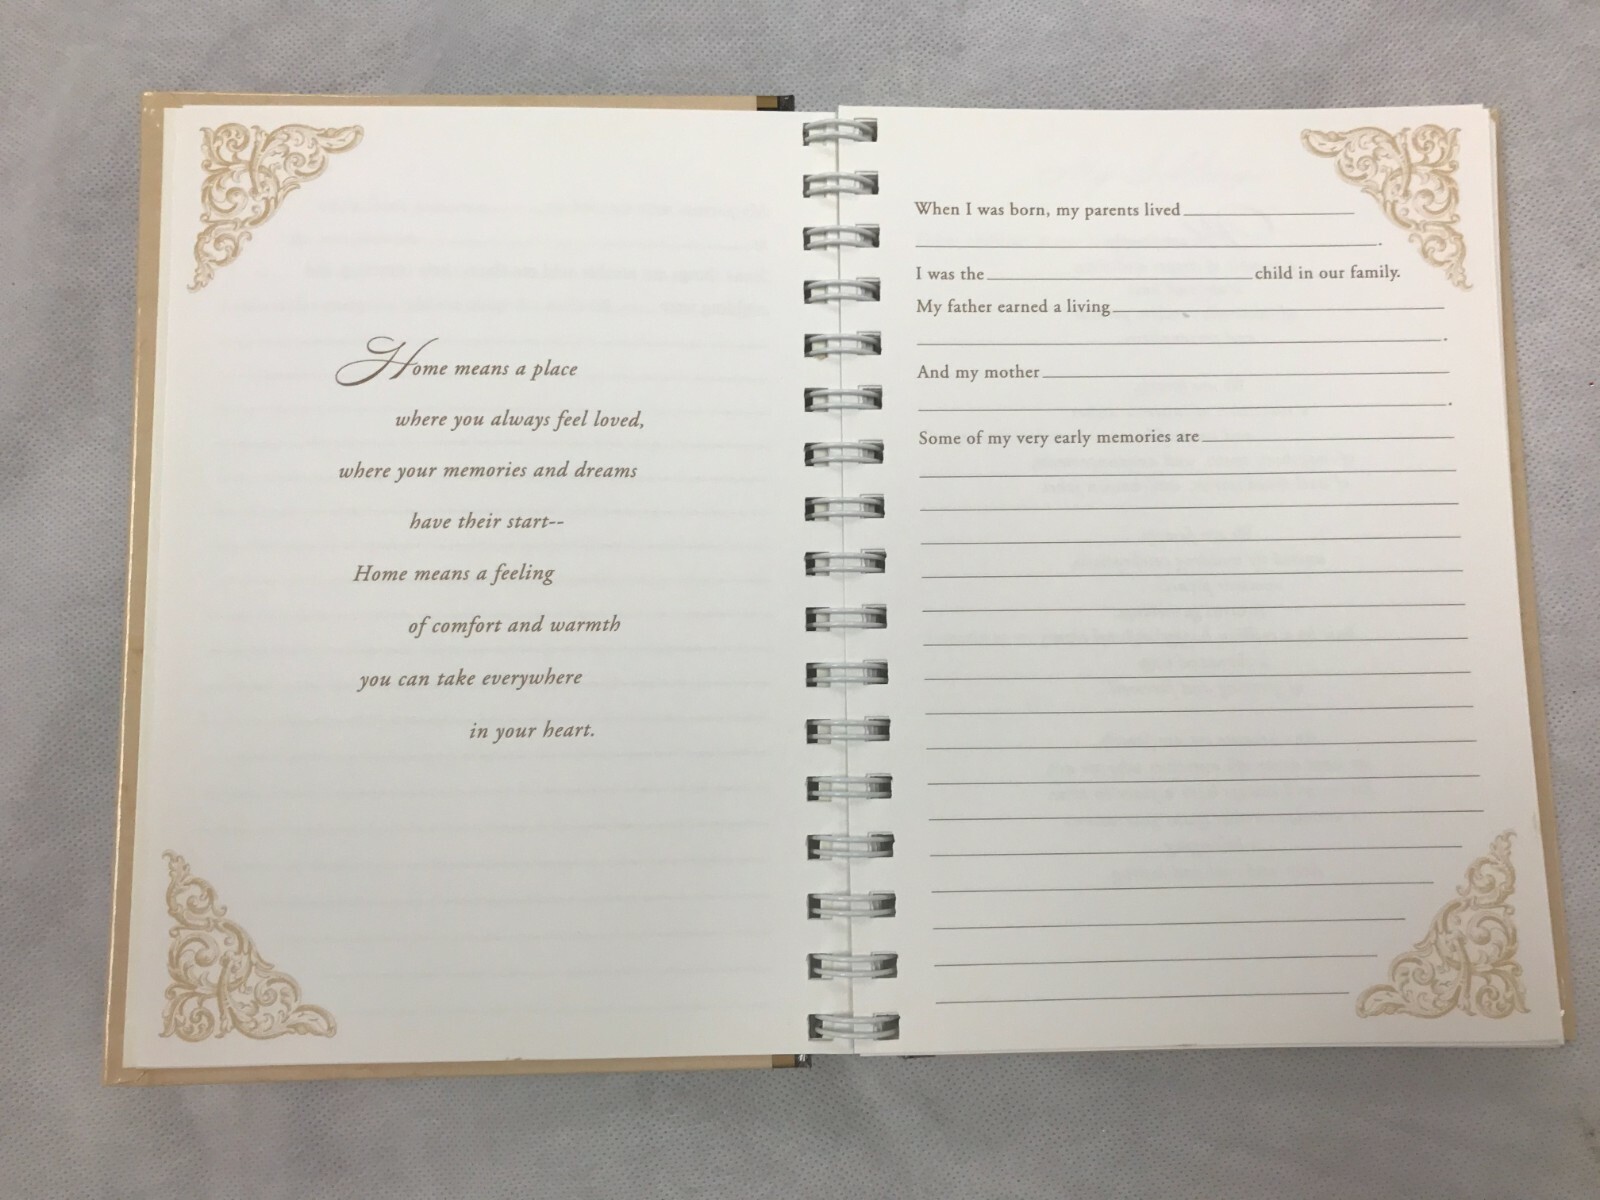 Home means a place
where you always feel loved,
where your memories and dreams
have their start--
Home means a feeling
of comfort and warmth
you can take everywhere
in your heart.
When I was born, my parents lived
.
I was the child in our family.
My father earned a living
.
And my mother
.
Some of my very early memories are